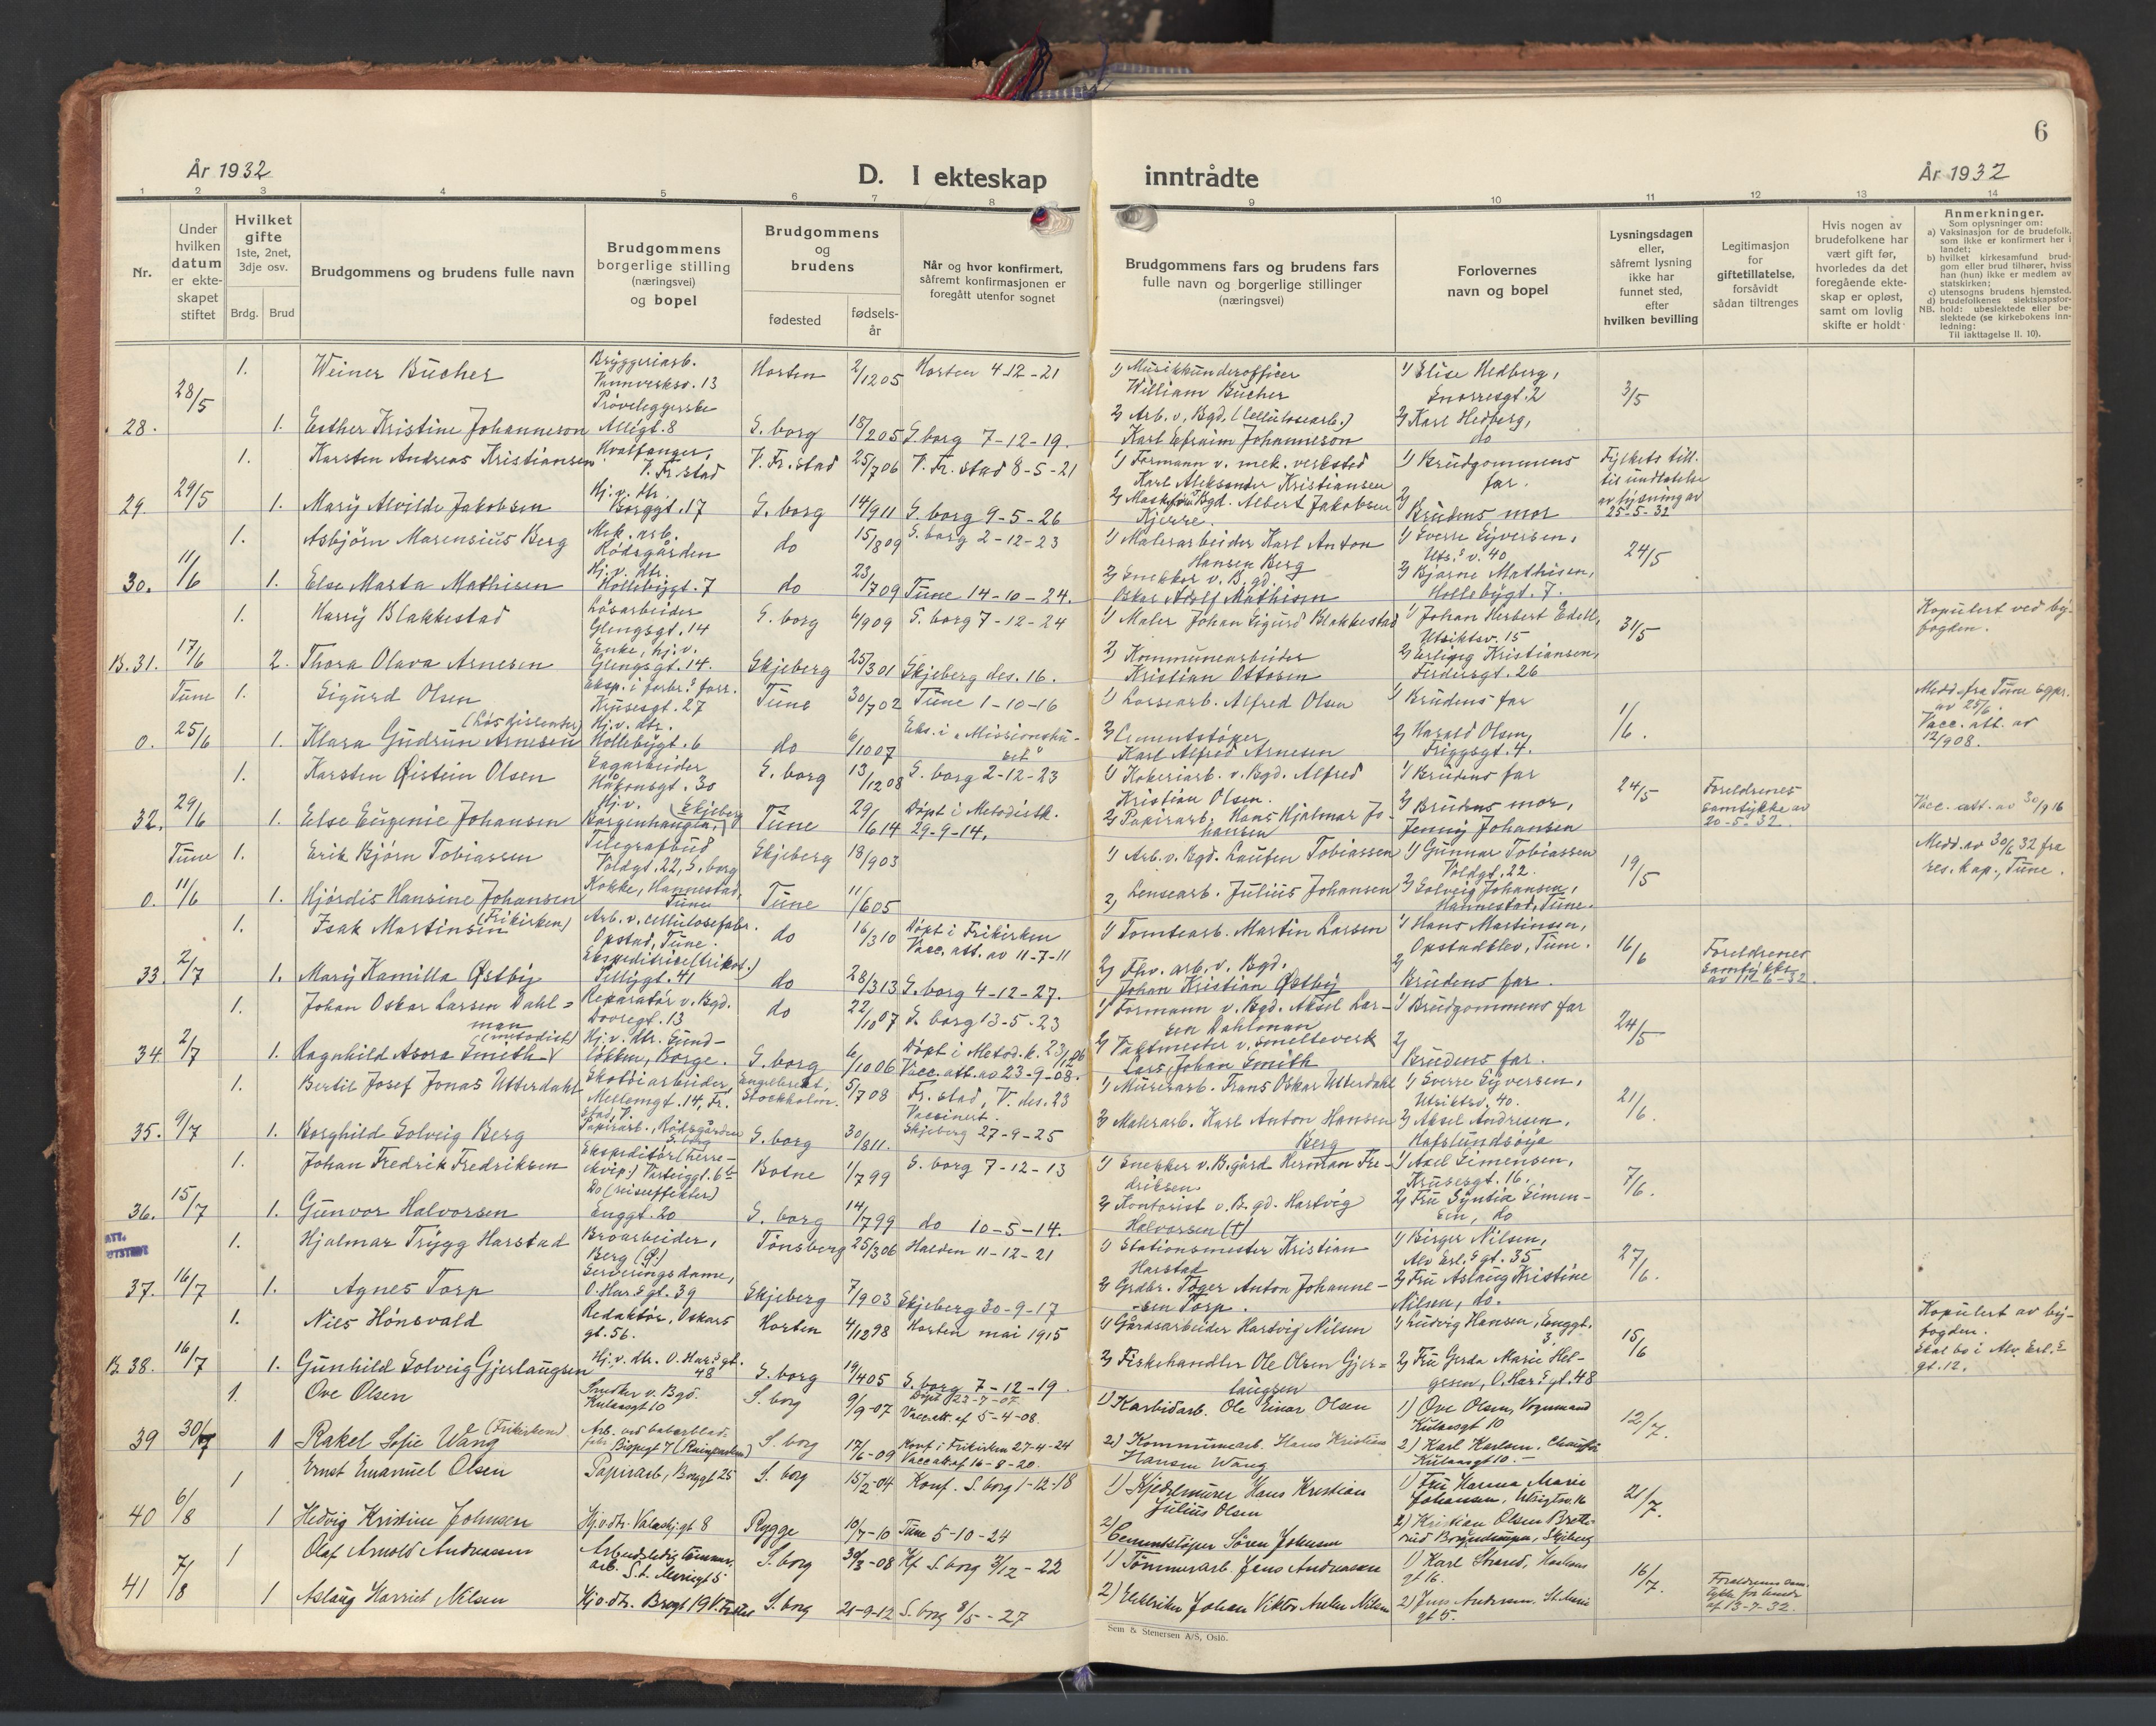 6
År 1932
D. I ekteskap
inntrådte
År 1932
1 2 3 4 5 6 7 8 9 10 11 12 13 14
Nr.
Under
hvilken
datum
er ekte-
skapet
stiftet
Hvilket
gifte
1ste, 2net,
3dje osv.
Brdg. Brud
Brudgommens og brudens fulle navn
Brudgommens
borgerlige stilling
(næringsvei)
og bopel
Brudgommens
og
brudens
fødested
fødsels-
år
Når og hvor konfirmert,
såfremt konfirmasjonen er
foregått utenfor sognet
Brudgommens fars og brudens fars
fulle navn og borgerlige stillinger
(næringsvei)
Forlovernes
navn og bopel
Lysningsdagen
eller,
såfremt lysning
ikke har
funnet sted,
efter
hvilken bevilling
Legitimasjon
for
giftetillatelse,
forsåvidt
sådan tiltrenges
Hvis nogen av
brudefolkene har
vært gift før,
hvorledes da det
foregående ekte-
skap er opløst,
samt om lovlig
skifte er holdt
Anmerkninger.
Som oplysninger om:
a) Vaksinasjon for de brudefolk,
som ikke er konfirmert her i
landet;
b) hvilket kirkesamfund brud-
gom eller brud tilhører, hviss
han (hun) ikke er medlem av
statskirken;
c) utensogns brudens hjemsted.
d) brudefolkenes slektskapsfor-
NB. hold: ubeslektede eller be-
slektede (se kirkebokens inn-
ledning:
Til iakttagelse II. 10).
28. 28/5
1. Weiner Bücher
Bryggeriarb.
Vannverksv. 13
Horten 2/12 05 Horten 4-12-21
1) Musikkunderofficer
William Bücher
1) Elise Hedberg,
Snorresgt. 2
3/5
1. Esther Kristine Johanneson
Prøveleggerske
Allégt. 8
S. borg 18/2 05 S. borg 7-12-19.
2) Arb. v. Bgd. (Cellulosearb.)
Karl Efraim Johanneson
2) Karl Hedberg,
do
29. 29/5
1. Karsten Andreas Kristiansen
Hvalfanger,
V. Fr. stad
V. Fr. stad 25/7 06 V. Fr. stad 8-5-21
1) Formann v. mek. verksted
Karl Aleksander Kristiansen
1) Brudgommens
far.
Fylkets till.
til undlatelse
av lysning av
25-5-32
1. Mary Alvilde Jakobsen
Hj. v. dtr.
Borggt. 17
S. borg 14/9 11 S. borg 9-5-26
2) Maskfører Bgd. Albert Jakobsen
Kjerre.
2) Brudens mor
30. 11/6
1. Asbjörn Marensius Berg
Mek. arb.
Rödsgården
do 15/8 09 S. borg 2-12-23
1) Malerarbeider Karl Anton
Hansen Berg
1) Sverre Syversen,
Uts. v. 40
24/5
1. Else Marta Mathisen
Hj. v. dtr.
Hollebygt. 7
do 23/1 09 Tune 14-10-24.
2) Snekker v. B. gd.
Oskar Adolf Mathisen
2) Bjarne Mathisen,
Hollebygt. 7.
B. 31. 17/6
1. Harry Blakkestad
Løsarbeider
Glengsgt. 14
S. borg 6/9 09 S. borg 7-12-24
1) Maler Johan Sigurd Blakkestad
1) Johan Herbert Edell,
Utsiktsv. 15
31/5
Kopulert ved by-
fogden.
2. Thora Olava Arnesen
Enke, hj. v.
Glengsgt. 14.
Skjeberg 25/3 01 Skjeberg des. 16.
2) Kommunearbeider
Kristian Ottosen
2) Erling Kristiansen,
Feidesgt. 26
0. Tune 25/6
1. Sigurd Olsen
Eksp. i farbr.s forr.
Krusesgt. 27
Tune 30/7 02 Tune 1-10-16
1) Lossearb. Alfred Olsen
1) Brudens far
1/6.
Medd. fra Tune sgpr.
av 25/6.
Vacc. att. av
12/9 08.
1. Klara Gudrun Arnesen (Løs dissenter)
Hj. v. dtr.
Hollebygt. 6
do 6/10 07
Eks. i „Missionshu-
set"
2) Cementstøper
Karl Alfred Arnesen
2) Harald Olsen,
Friggsgt. 4.
32. 29/6
1. Karsten Øistein Olsen
Sagarbeider
Håkonsgt. 30
S. borg 13/12 08 S. borg 2-12-23
1) Kokeriarb. v. Bgd. Alfred
Kristian Olsen.
1) Brudens far
24/5
Foreldrenes
samtykke av
20-5-32.
Vacc. att. av 30/9 16
1. Else Eugenie Johansen
Hj. v. (Skjeberg)
Borgenhaugen,
Tune 29/6 14
Døpt i Metodistk.
29-9-14.
2) Papirarb. Hans Hjalmar Jo-
hansen
2) Brudens mor,
Jenny Johansen
0. Tune 11/6
1. Erik Bjørn Tobiassen
Telegrafbud
Voldgt. 22, S. borg
Skjeberg 18/9 03
1) Arb. v. Bgd. Laufen Tobiassen
1) Gunnar Tobiassen
Voldgt. 22.
19/5
Medd. av 30/6 32 fra
res. kap., Tune.
1. Hjördis Hansine Johansen
Kokke, Hannestad,
Tune
Tune 11/6 05
2) Lensearb. Julius Johansen
2) Solveig Johansen,
Hannestad, Tune.
33. 2/7
1. Isak Martinsen (Frikirken)
Arb. v. cellulosefabr.
Opstad, Tune.
do 16/3 10
Døpt i Frikirken
Vacc. att. av 11-7-11
1) Tomtearb. Martin Larsen
1) Hans Martinsen,
Opstadblev, Tune.
16/6
Foreldrenes
samtykke
av 112-6-32
1. Mary Kamilla Østby
Ekspeditrise (trikot.)
Pellygt. 41
do 28/3 13 S. borg 4-12-27.
2) Fhv. arb. v. Bgd.
Johan Kristian Østby
2) Brudens far.
34. 2/7
1. Johan Oskar Larsen Dahl=
man
Reparatør v. Bgd.
Dovregt. 13
do 22/10 07 S. borg 13-5-23
1) Formann v. Bgd. Aksel Lar-
sen Dahlman
1) Brudgommens far
24/5
1. Ragnhild Asora Smith (metodist)
Hj. v. dtr. Sund-
løkken, Borge.
S. borg 6/10 06
Døpt i Metod. k. 23/12 06
Vacc. att. av 23-9-08.
2) Vaktmester v. smelteverk
Lars Johan Smith
2) Brudens far.
35. 9/7
1. Bertil Josef Jonas Utterdahl
Skotöiarbeider,
Mellemgt. 14, Fr.
stad, V.
Engelbrekt,
Stockholm. 5/7 08
Fr. stad, V. des. 23
Vaccinert.
1) Murerarb. Frans Oskar Utterdahl
1) Sverre Syversen,
Utsiktsv. 40.
21/6.
1. Borghild Solveig Berg
Papirarb., Rödsgården
S. borg
S. borg 30/8 11. Skjeberg 27-9-25
2) Malerarb. Karl Anton Hansen
Berg
2) Aksel Andresen,
Hafslundsöya
36. 15/7
1. Johan Fredrik Fredriksen
Ekspeditör (herre-
ekvip.) Varteiggt. 6b
Botne 1/7 99 S. borg 7-12-13
1) Snekker v. B. gård Herman Fre-
driksen.
1) Axel Simensen,
Krusesgt. 16.
7/6.
1. Gunvor Halvorsen
Do (reiseeffekter)
Enggt. 20
S. borg 14/7 99 do 10-5-14.
2) Kontorist v. B. gd. Hartvig
Halvorsen (†)
2) Fru Syntia Simen-
sen, do
ATT.
UTSTEDT
37. 16/7
1. Hjalmar Trygg Harstad
Broarbeider,
Berg (Ø.)
Tönsberg 25/3 06 Halden 11-12-21
1) Stationsmester Kristian
Harstad
1) Birger Nilsen,
Alv Erl.s gt. 35
27/6.
1. Agnes Torp
Serveringsdame,
O. Har.s gt. 39
Skjeberg 7/9 03 Skjeberg 30-9-17
2) Grdbr. Töger Anton Johanne-
sen Torp.
2) Fru Aslaug Kristine
Nilsen, do.
B. 38. 16/7
1. Niels Hönsvald
Redaktör, Oskars
gt. 56.
Horten 4/12 98 Horten mai 1915
1) Gårdsarbeider Hartvig Nilsen
1) Ludvig Hansen, Enggt.
3.
15/6
Kopulert av by-
fogden.
Skal bo i Alv. Erl.s
gt. 12.
1. Gunhild Solveig Gjerlaugsen
Hj. v. dtr. O. Har.s gt.
48
S. borg 19/4 05 S. borg 7-12-19.
2) Fiskehandler Ole Olsen Gjer=
laugsen
2) Fru Gerda Marie Hel-
gesen, O. Har.s gt. 48
39 30/7
1. Ove Olsen
Snedker v. Bgd.
Kulaasgt 10
S. borg 9/9-07
Døpt 23-7-07.
Vacc. att. af 5-4-08.
1) Karbidarb. Ole Einar Olsen
1) Ove Olsen, Vognmand
Kulaasgt 10
12/7.
1 Rakel Sofie Wang (Frikirken)
Bispegt 7
S. borg 17/6-09
Konf i Frikirken 27-4-24
Vacc att af 16-8-20.
2) Kommunearb. Hans Kristian
Hansen Wang
2) Karl Karlsen, Chauffør
Kulaasgt 10.-
40 6/8
1 Ernst Emanuel Olsen
Papirarb, Borggt 25
S. borg 15/2-04 Konf. S. borg 1-12-18
1) Kjedelmurer Hans Kristian
Julius Olsen
1) Fru Hanna Marie
Johansen, Utsigtsv. 16
21/7.
1 Hedvig Kristine Johnsen
Hj. v. dtr. Valaskj. gt 8
Rygge 10/7-10 Tune 5-10-24
2) Cementstøper Søren Johnsen
2) Kristian Olsen
41 7/8
1 Olaf Arnold Andreassen
Arbeidsledig tømmer.
arb. St. Mariegt 5
S. borg 30/3-08 Kf S. borg 3/12-22
1) Tømmerarb. Jens Andreassen
1) Karl Strand,
gt 16.
16/7.
af 13-7-32.
1 Aslaug Harriet Nilsen
Hj. v. dtr.
S. borg 21-9-12 S. borg 8/5-27
2) Elektriker Johan Viktor Nilsen
2) Jens Andreassen. St. Marie
gt 5.
Sem & Stenersen A/S, Oslo.